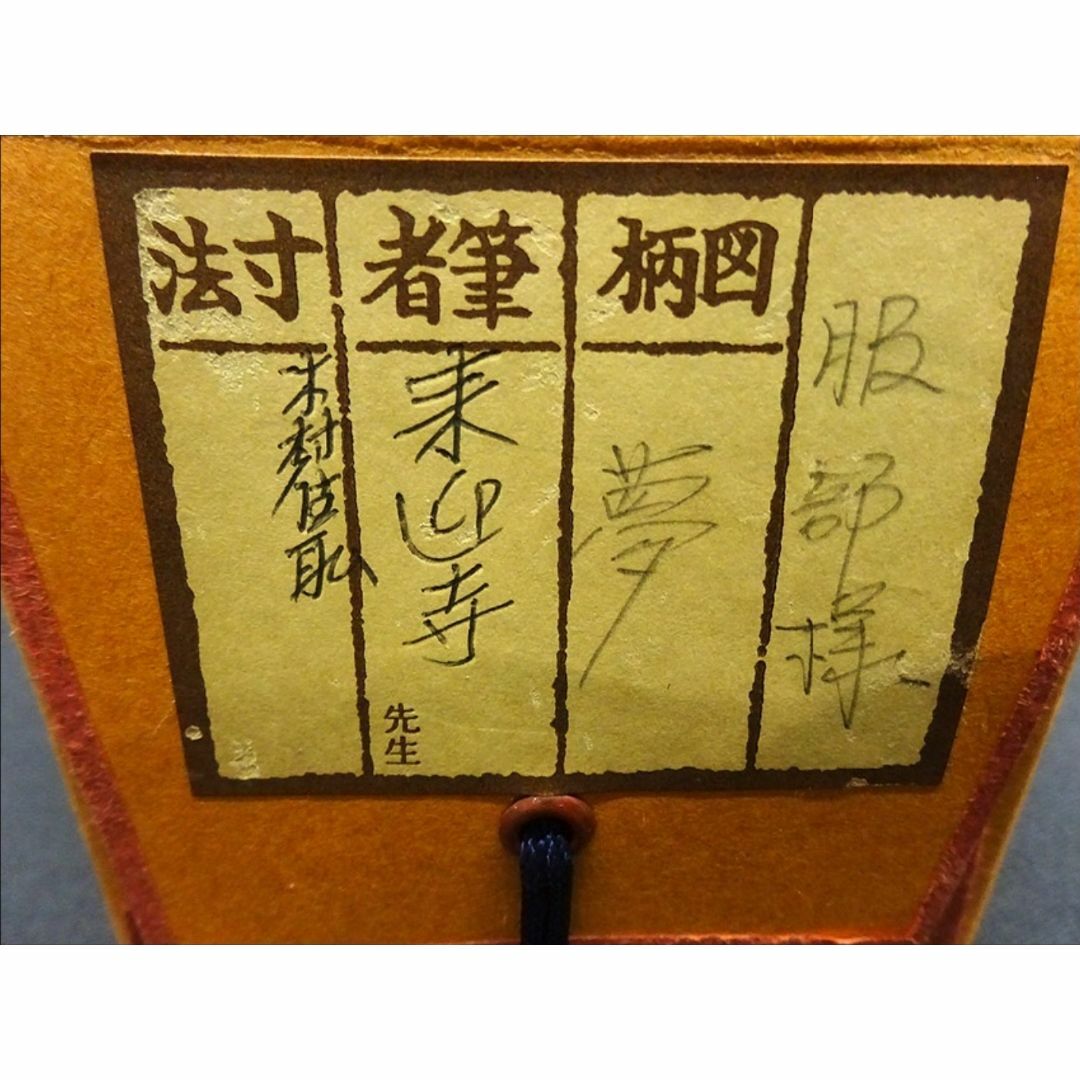 服部様
図柄
夢
筆者
来迎寺
先生
寸法
木村